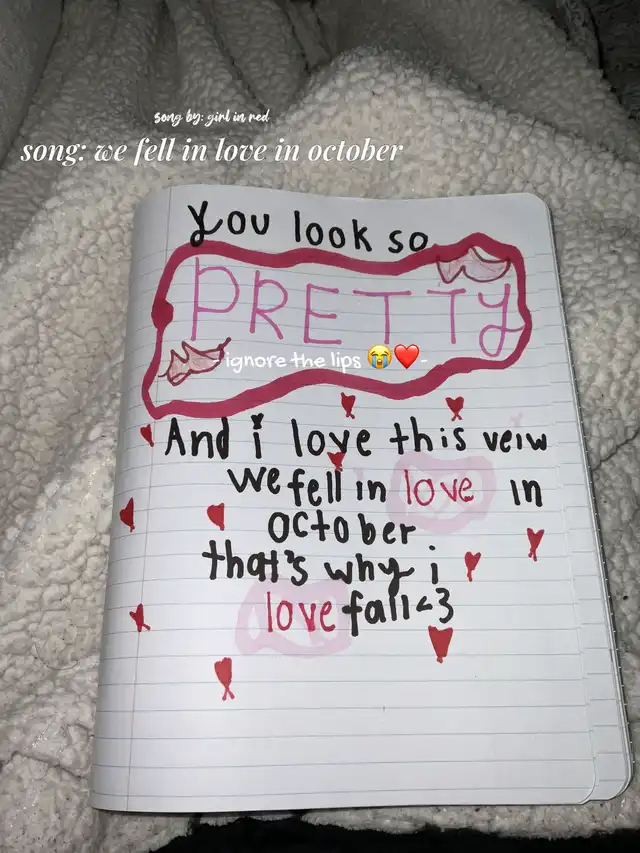 song by: girl in red
song: we fell in love in october
You look so
PRETTY
- ignore the lips 😭❤️ -
And i love this veiw
we fell in love in
October
that's why i
love fall<3